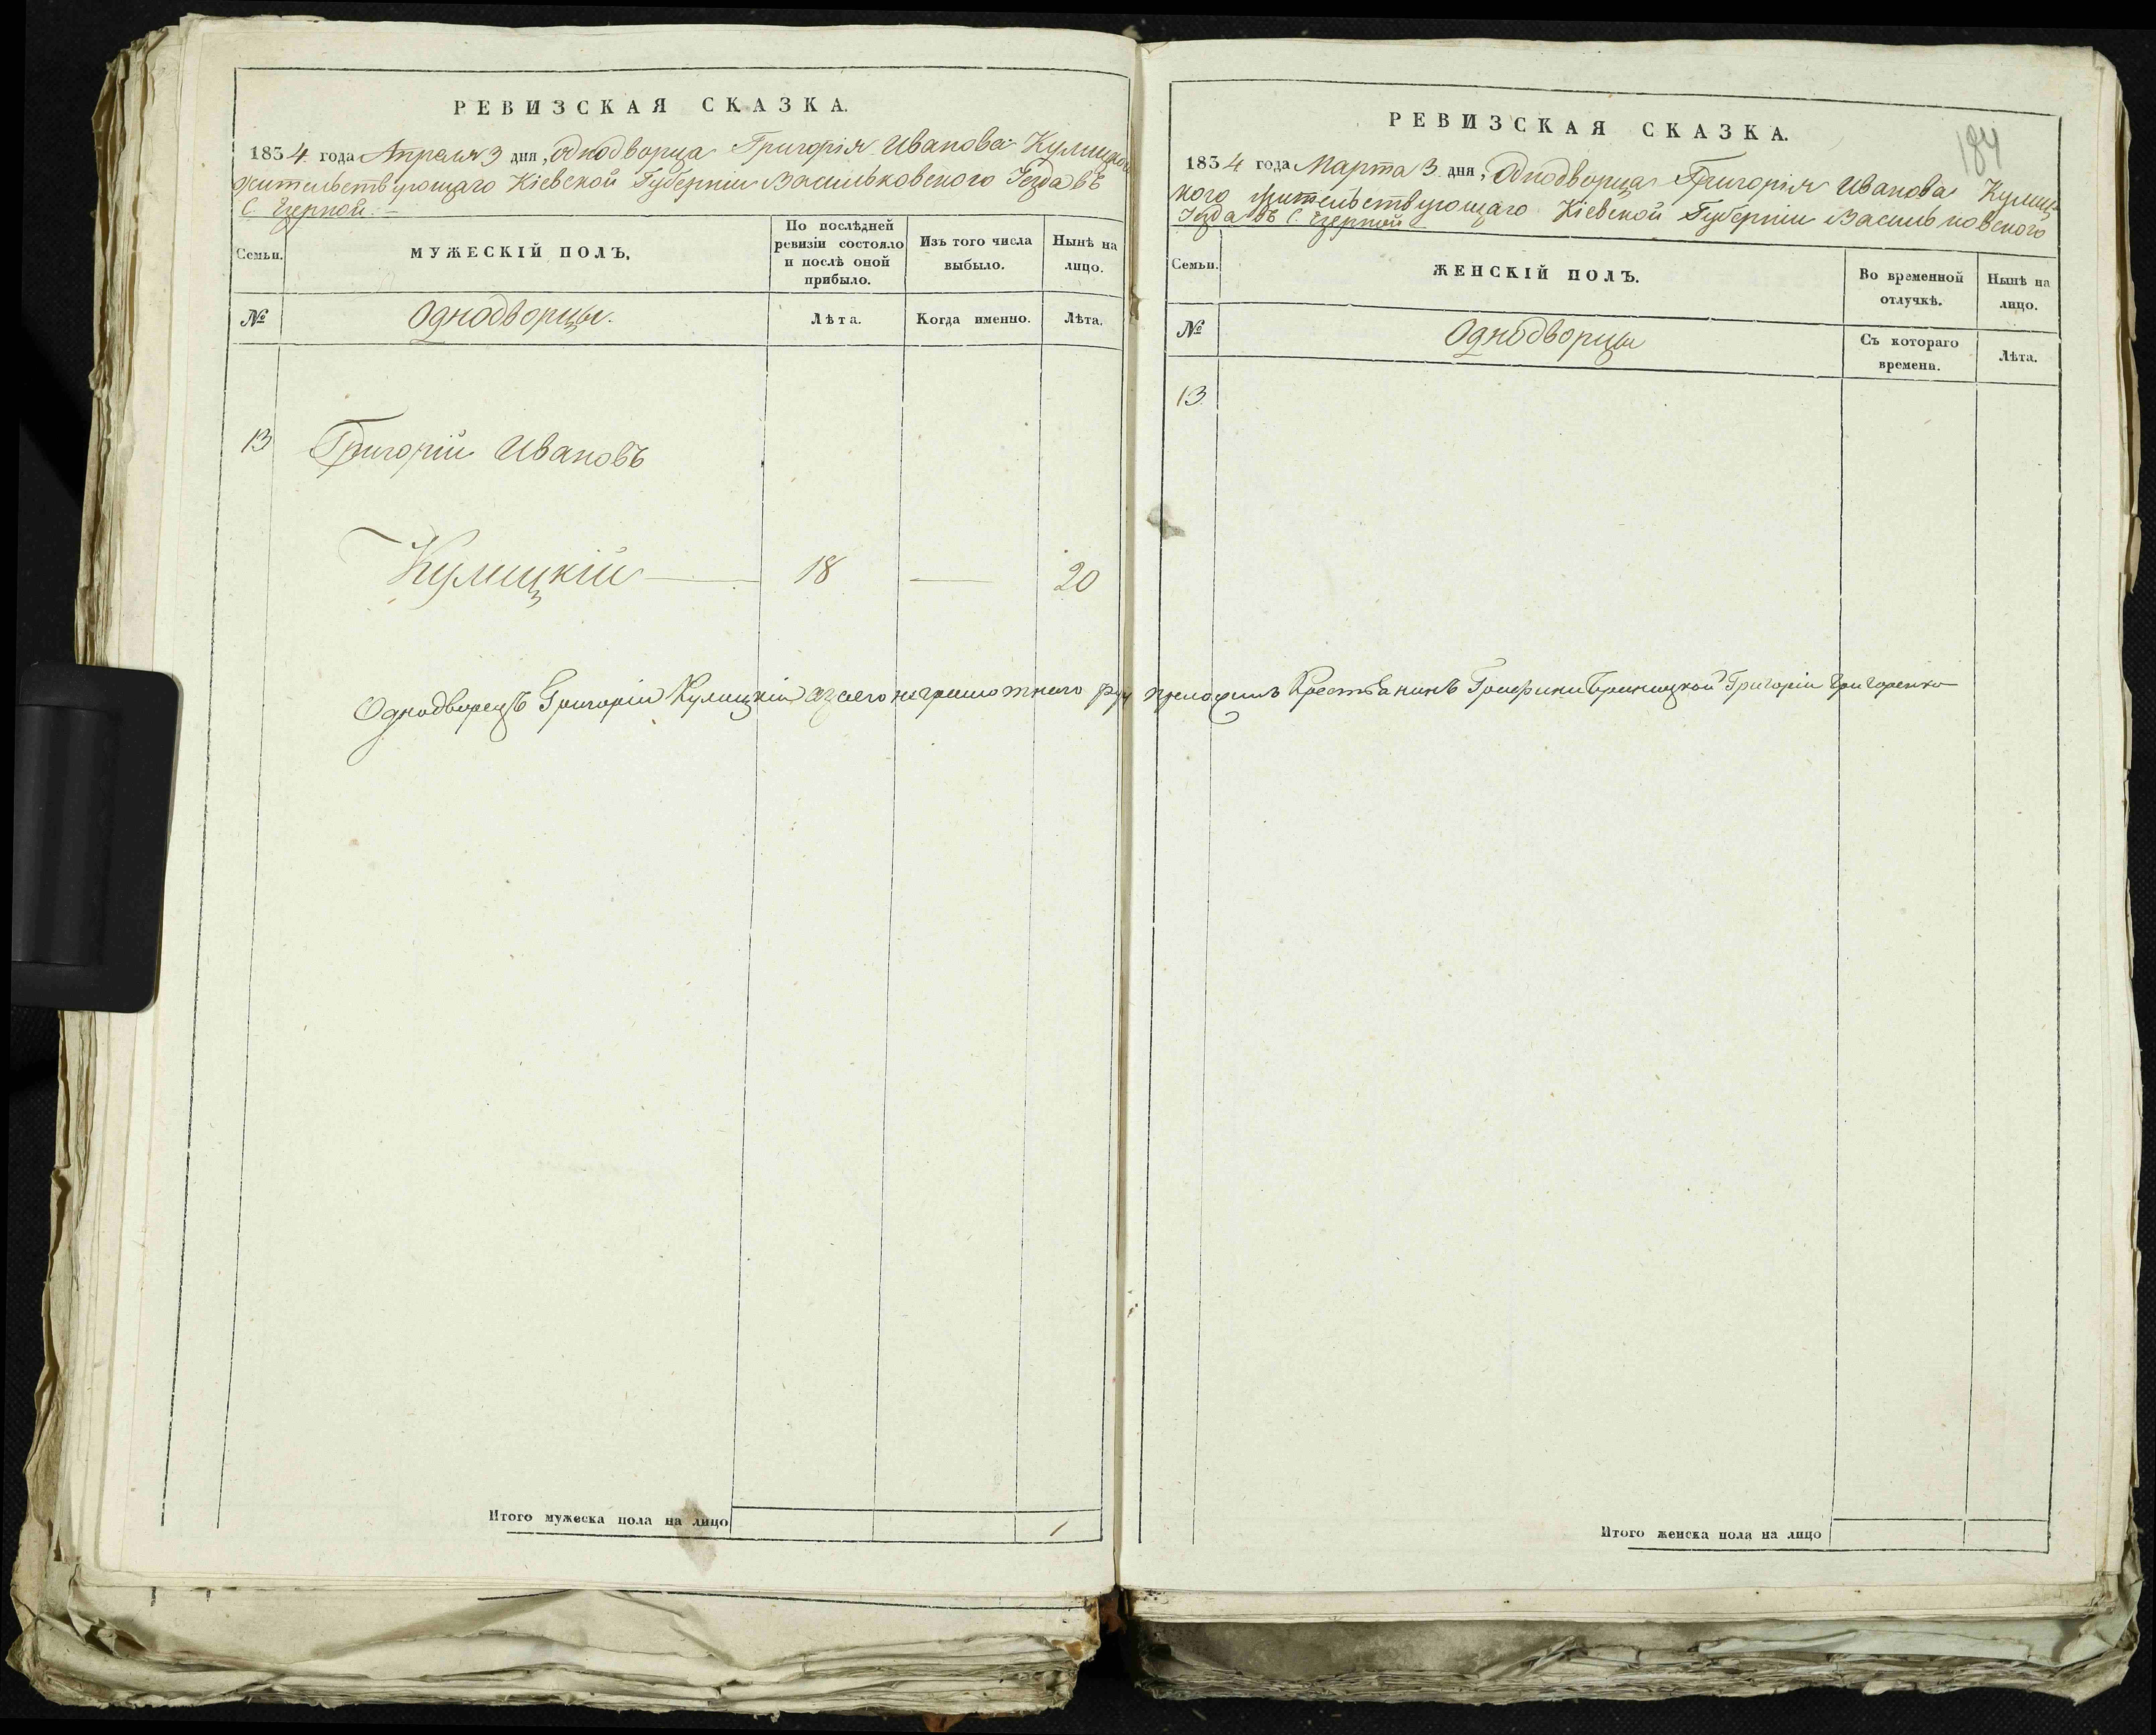 РЕВИЗСКАЯ СКАЗКА.
1834 года Апреля 3 дня, Однодворца Григорія Иванова Кулицкого
жительствующаго Кіевской Губерніи Васильковского Уезда въ
С. Езерной.
Семьи.
МУЖЕСКІЙ ПОЛЪ.
По послѣдней
ревизіи состояло
и послѣ оной
прибыло.
Изъ того числа
выбыло.
Нынѣ на
лицо.
№
Однодворцы.
Лѣта.
Когда именно.
Лѣта.
13 Григорій Ивановъ
Кулицкій — 18 — 20
Однодворецъ Григорій Кулицкій а за его неграмотного рук
Итого мужеска пола на лицо 1
184
РЕВИЗСКАЯ СКАЗКА.
1834 года Марта 3 дня, Однодворца Григорія Иванова Кулиц-
кого жительствующаго Кіевской Губерніи Васильковского
Уезда въ С. Езерной
Семьи.
ЖЕНСКІЙ ПОЛЪ.
Во временной
отлучкѣ.
Нынѣ на
лицо.
№
Однодворцы
Съ котораго
времени.
Лѣта.
13
приложилъ Крестьянинъ Графини Браницкой Григорій Григоренко
Итого женска пола на лицо